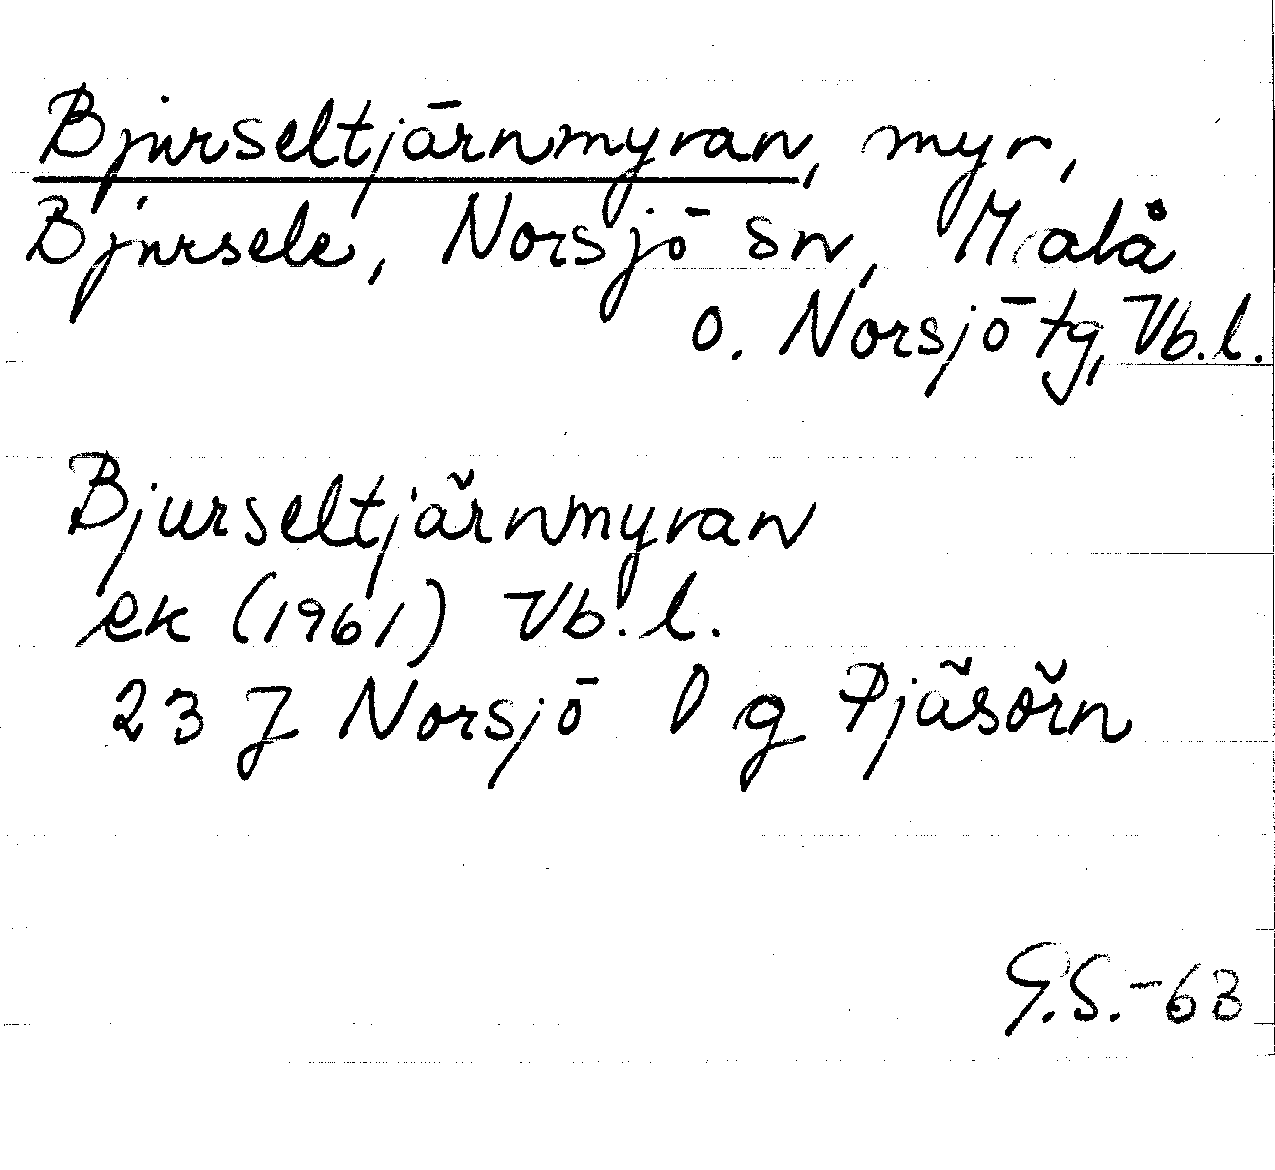 Bjurseltjärnmyran, myr,
Bjursele, Norsjö sn, Malå
o. Norsjö tg, Vb.l.
Bjurseltjärnmyran
ek (1961) Vb.l.
23 J Norsjö 0 g Pjäsörn
G.S.-63